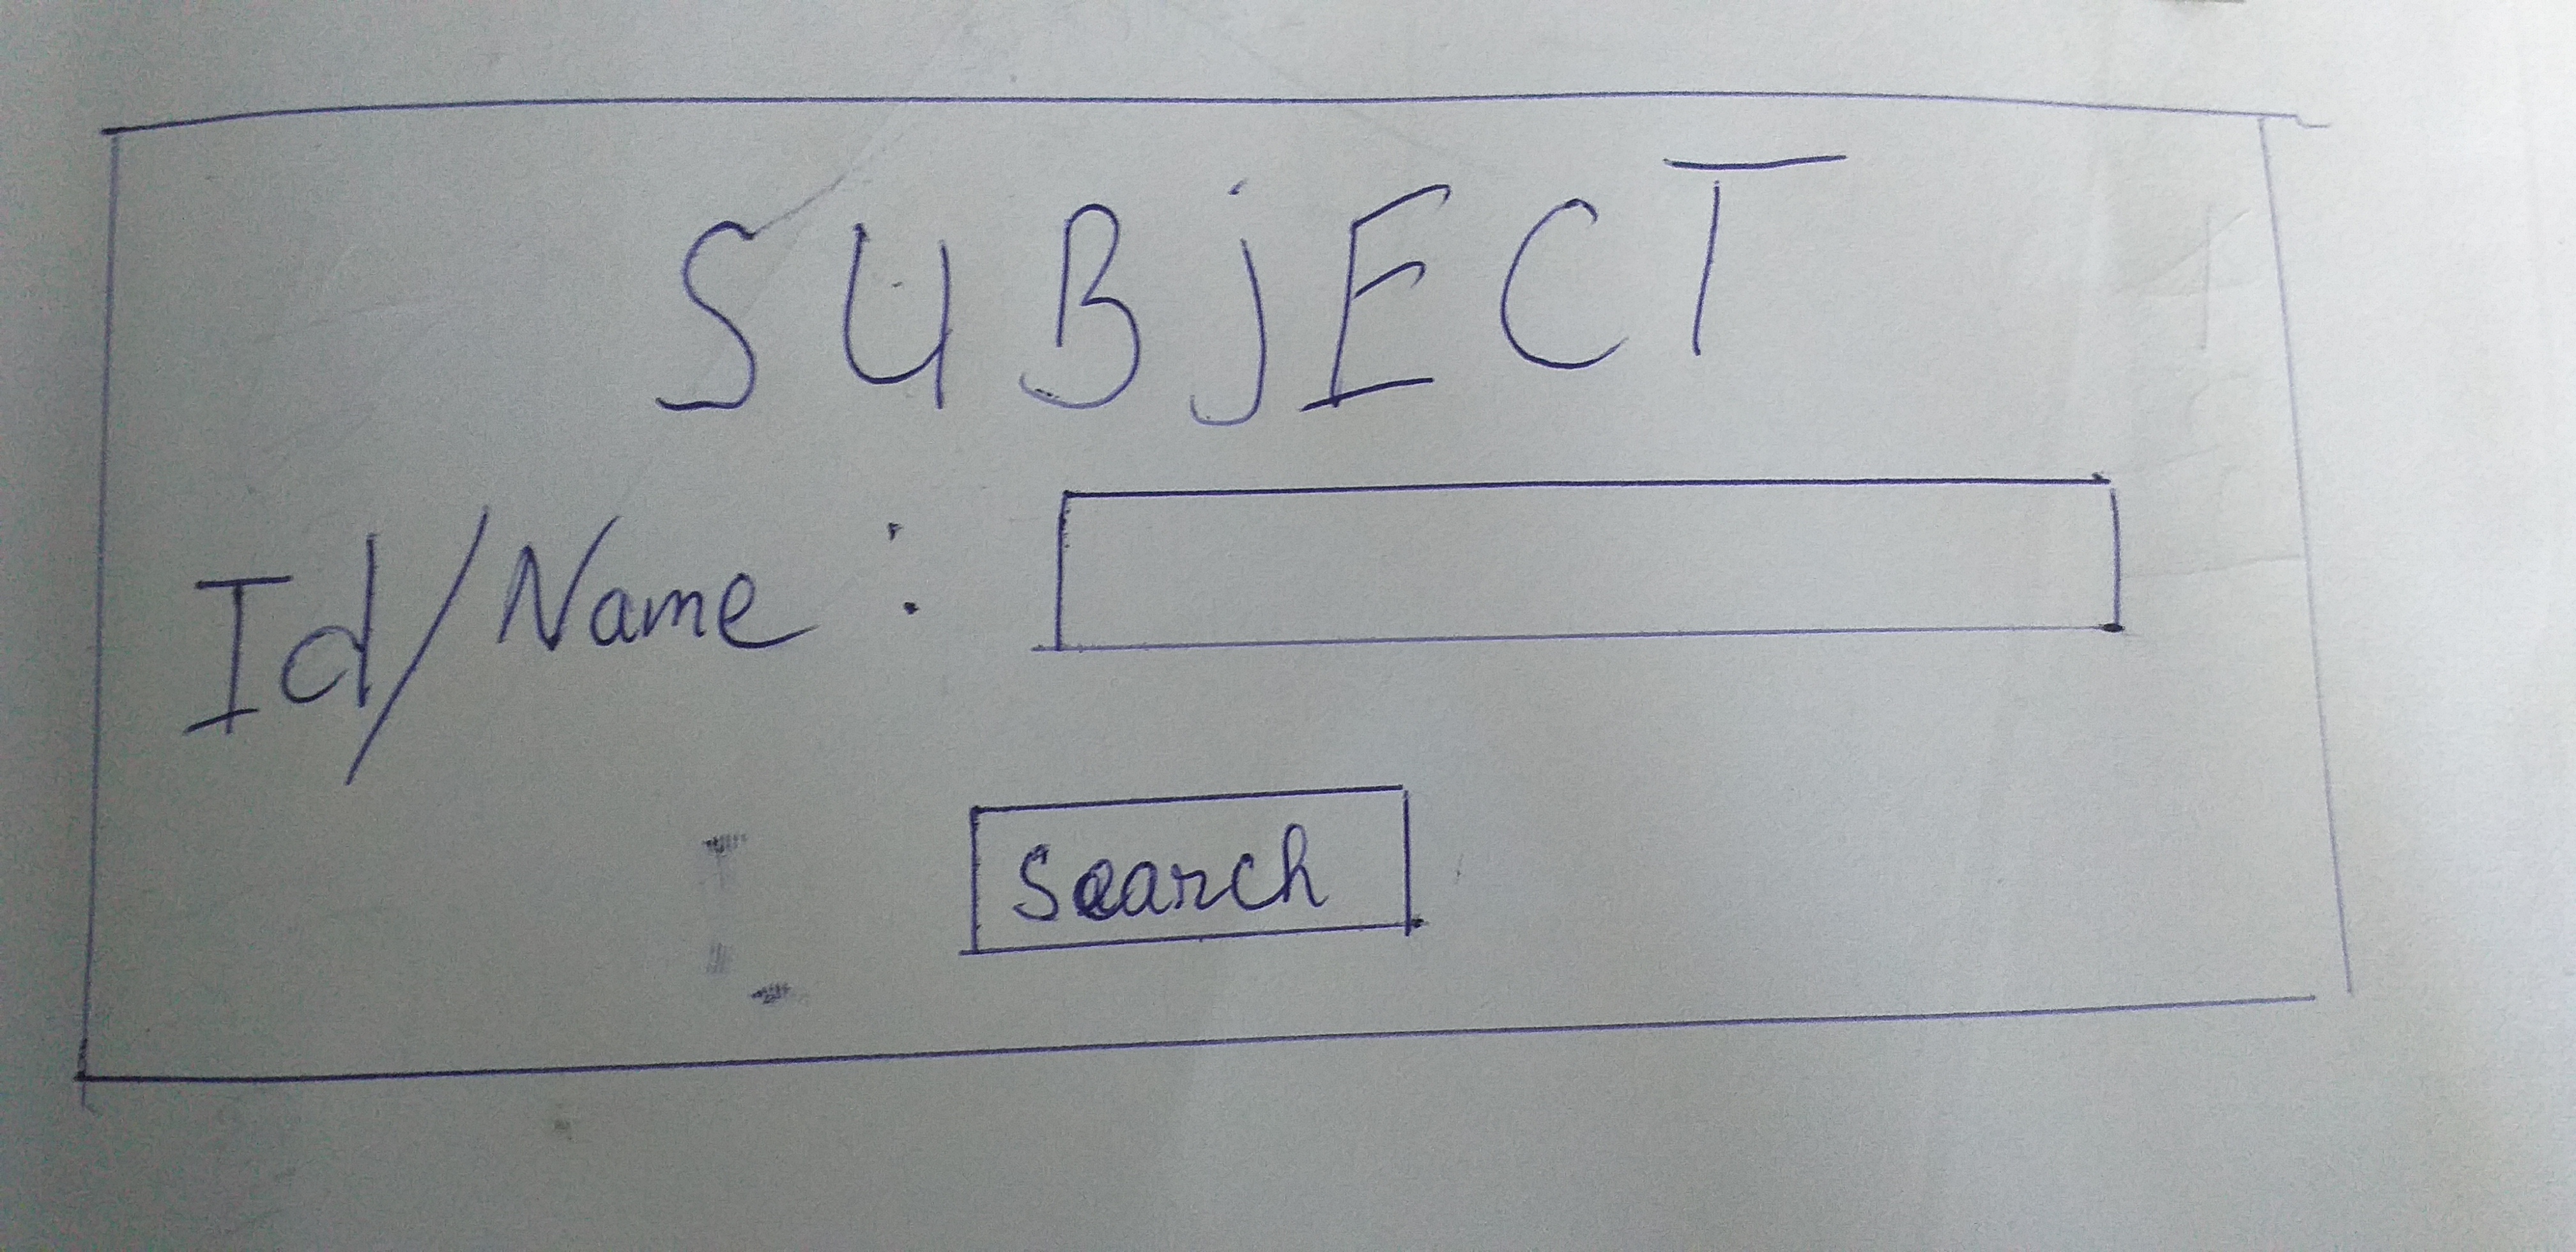 SUBjECT
Id/Name :
Search